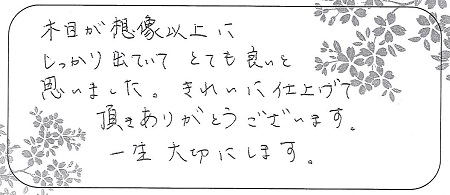 木目が想像以上に
しっかり出ていて とても良いと
思いました。きれいに仕上げて
頂きありがとうございます。
一生大切にします。